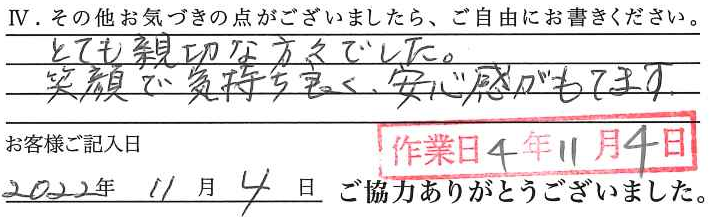 Ⅳ．その他お気づきの点がございましたら、ご自由にお書きください。
とても親切な方々でした。
笑顔で気持ち良く、安心感がもてます
お客様ご記入日
作業日4年11月4日
2022年 11月4日 ご協力ありがとうございました。